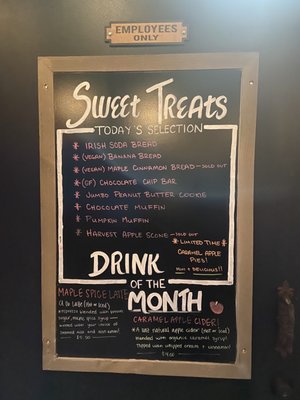 EMPLOYEES
ONLY
SWEET TREATS
TODAY'S SELECTION
* IRISH SODA BREAD
* (VEGAN) BANANA BREAD
* (VEGAN) MAPLE CINNAMON BREAD - SOLD OUT
* (GF) CHOCOLATE CHIP BAR
* JUMBO PEANUT BUTTER COOKIE
* CHOCOLATE MUFFIN
* PUMPKIN MUFFIN
* HARVEST APPLE SCONE - SOLD OUT
* LIMITED TIME *
CARAMEL APPLE
PIES!
MINI & DELICIOUS!!
DRINK
OF THE
MONTH
MAPLE SPICE LATTE
(hot or iced)
espresso blended with brown
sugar, maple spice syrup
CARAMEL APPLE CIDER!
natural apple cider (hot or iced)
blended with organic caramel syrup!
Topped with whipped cream + cinnamon!